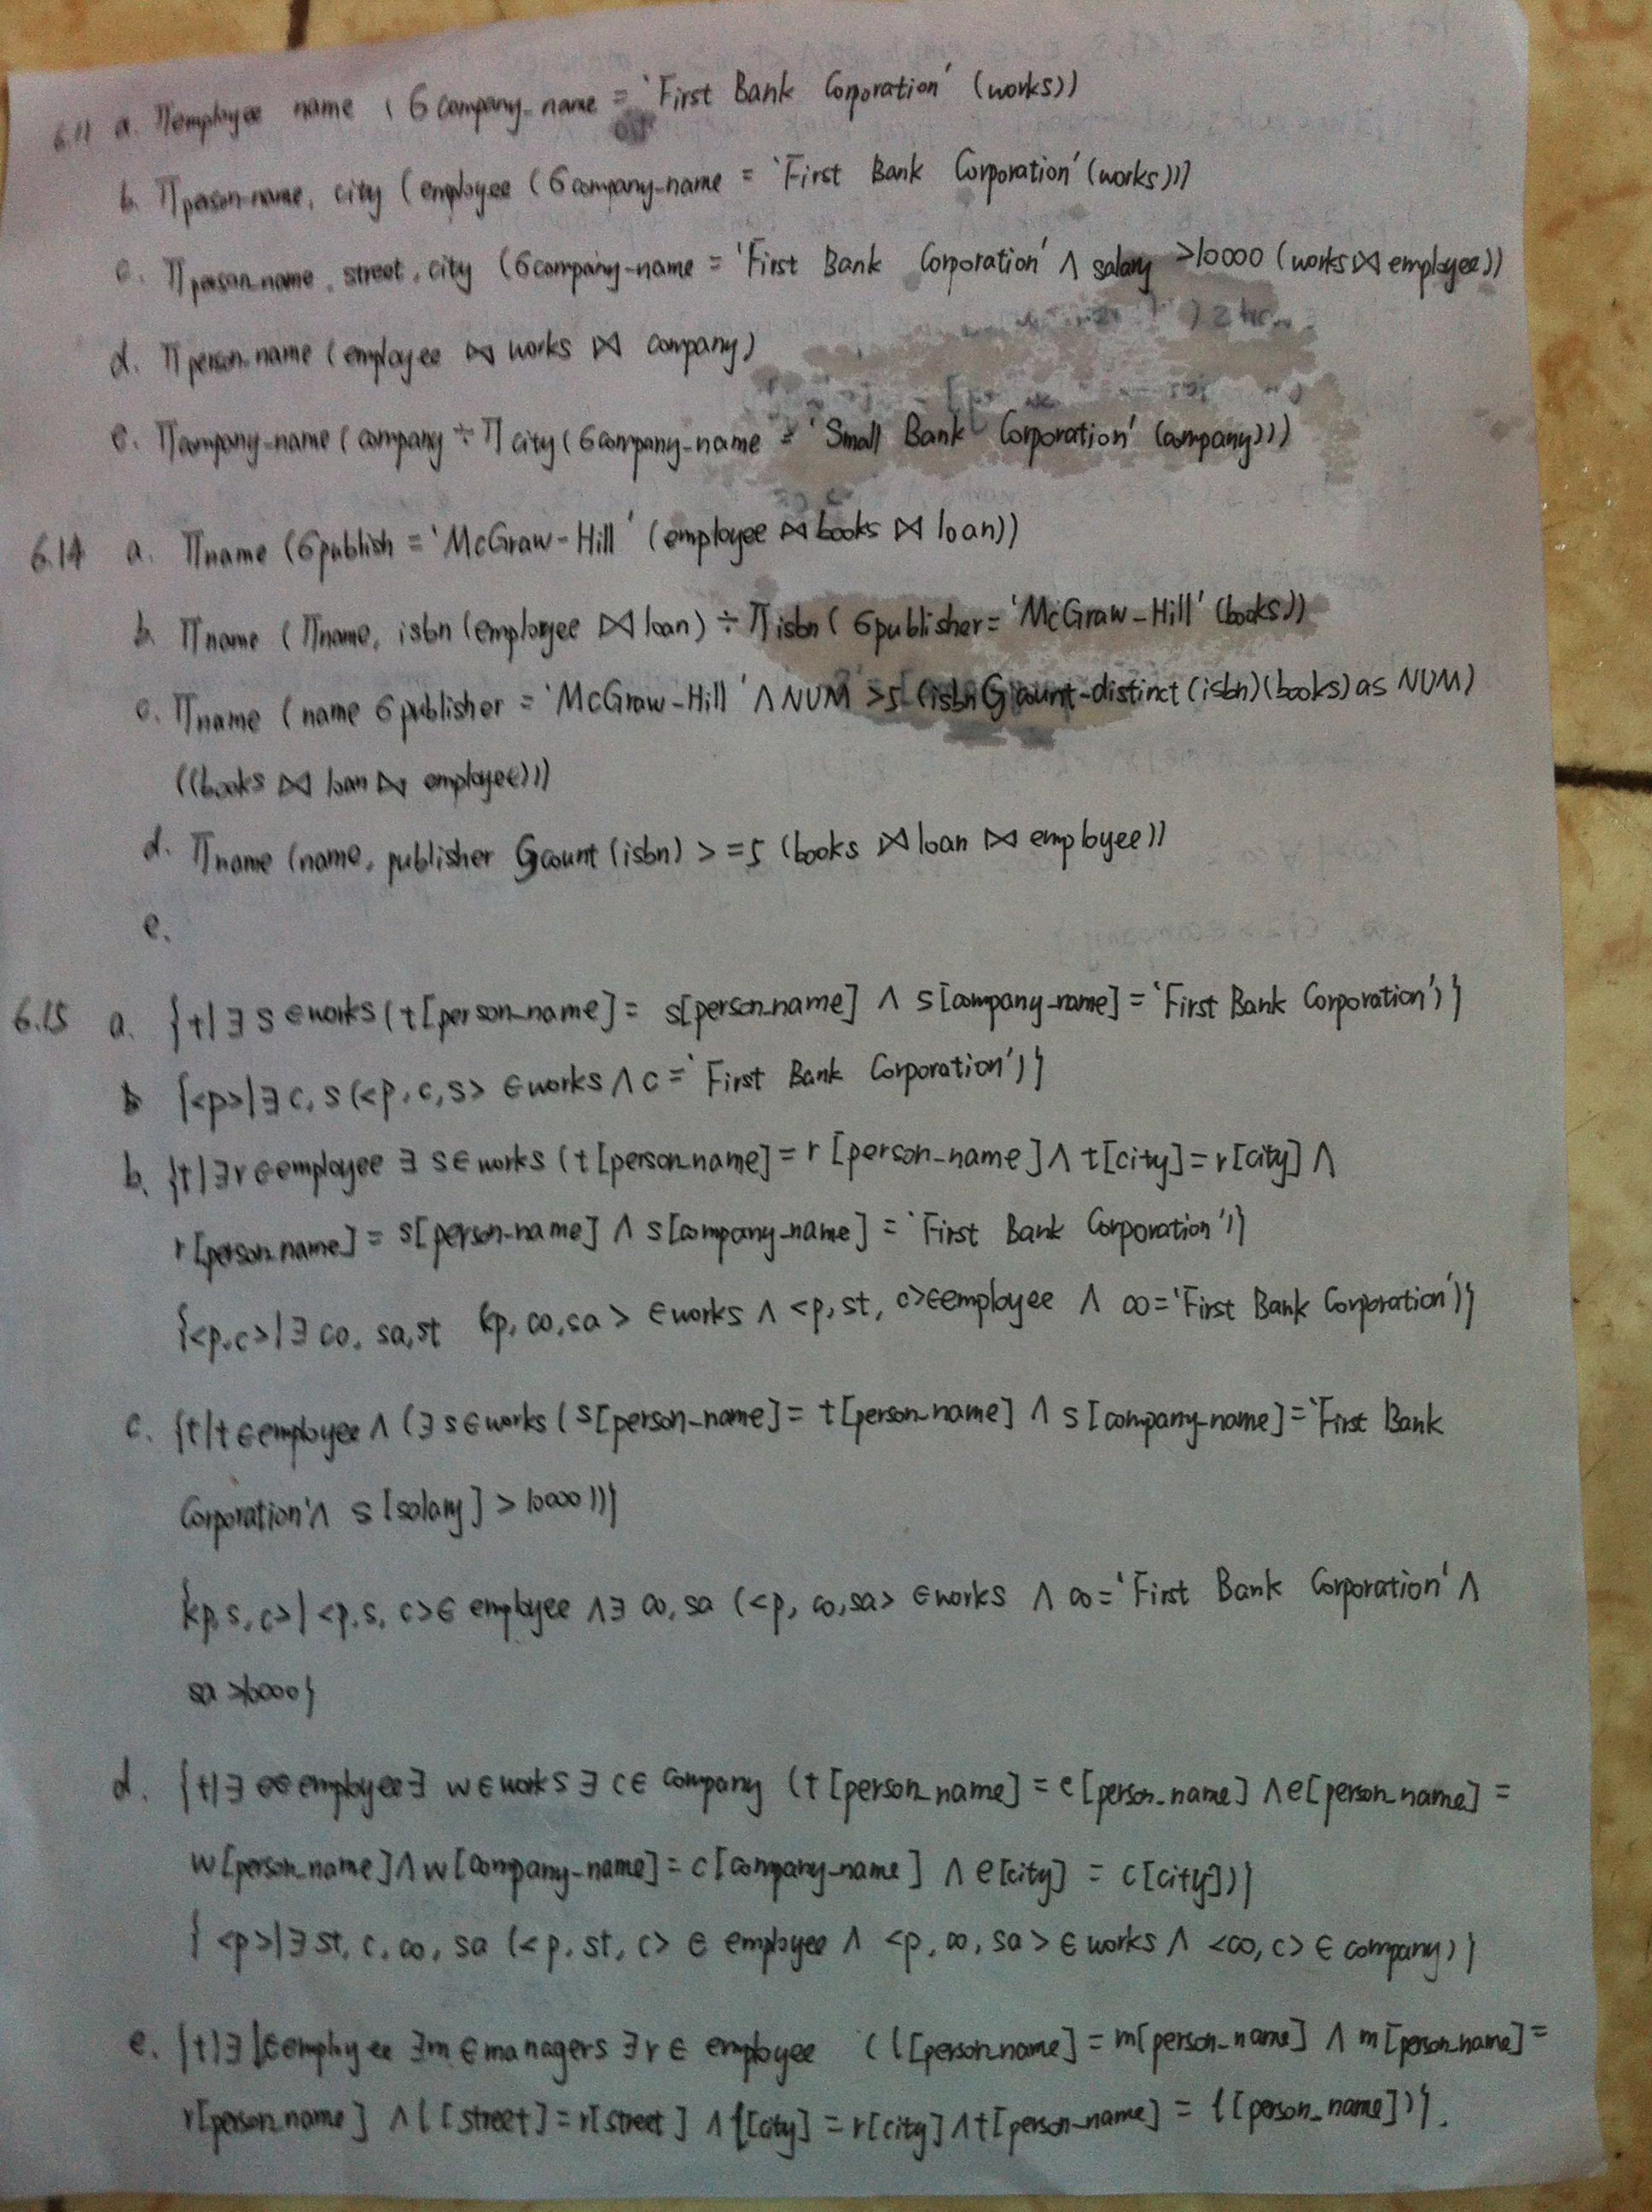 6.11 a. Πemployee name ( σcompany_name = 'First Bank Corporation' (works))
b. Πperson-name, city (employee (σcompany-name = 'First Bank Corporation' (works)))
c. Πperson_name, street, city (σcompany-name = 'First Bank Corporation' ∧ salary >10000 (works⋈employee))
d. Πperson_name (employee ⋈ works ⋈ company)
e. Πcompany-name (company ÷ Πcity (σcompany-name = 'Small Bank Corporation' (company)))
6.14 a. Πname (σpublish = 'McGraw-Hill' (employee ⋈ books ⋈ loan))
b. Πname (Πname, isbn (employee ⋈ loan) ÷ Πisbn (σpublisher = 'McGraw-Hill' (books))
c. Πname (name σpublisher = 'McGraw-Hill' ∧ NUM >5 (isbn G count-distinct (isbn) (books) as NUM)
((books ⋈ loan ⋈ employee)))
d. Πname (name, publisher Gcount (isbn) > =5 (books ⋈ loan ⋈ employee))
e.
6.15 a. {t|∃ s ∈ works (t[person_name] = s[person_name] ∧ s[company_name] = 'First Bank Corporation')}
b {<p>|∃ c, s (<p, c, s> ∈ works ∧ c = 'First Bank Corporation')}
b. {t|∃ r ∈ employee ∃ s ∈ works (t[person_name] = r [person_name] ∧ t[city] = r[city] ∧
r[person_name] = s[person-name] ∧ s[company_name] = 'First Bank Corporation')}
{<p,c>|∃ co, sa, st (<p, co, sa > ∈ works ∧ <p, st, c>∈employee ∧ co = 'First Bank Corporation')}
c. {t|t ∈ employee ∧ (∃ s ∈ works ( s[person_name] = t[person_name] ∧ s [company_name] = 'First Bank
Corporation' ∧ s [salary] > 10000 ))}
{<p, s, c>| <p, s, c> ∈ employee ∧ ∃ co, sa (<p, co, sa> ∈ works ∧ co = 'First Bank Corporation' ∧
sa >10000}
d. {t|∃ e∈ employee ∃ w ∈ works ∃ c ∈ company (t [person_name] = e [person_name] ∧ e[person_name] =
w [person_name] ∧ w [company_name] = c [company_name] ∧ e [city] = c [city])}
{ <p>|∃ st, c, co, sa (<p, st, c> ∈ employee ∧ <p, co, sa > ∈ works ∧ <co, c> ∈ company)}
e. {t|∃ l∈employee ∃m ∈ managers ∃ r ∈ employee (l[person_name] = m[person_name] ∧ m [person_name] =
r[person_name] ∧ l [street] = r[street] ∧ l[city] = r[city] ∧ t[person_name] = l [person_name])}.